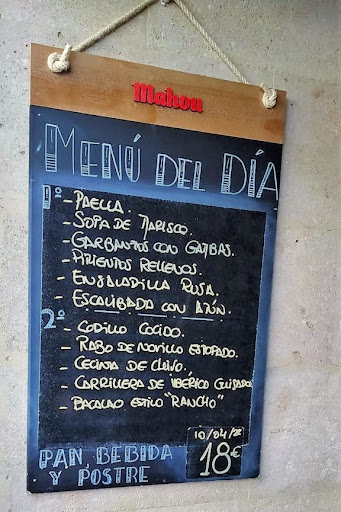 Mahou
MENÚ DEL DÍA
1º - PAELLA.
- SOPA DE MARISCO.
- GARBANTOS CON GAMBAS.
- PIMIENTOS RELLENOS.
- ENSALADILLA RUSA.
- ESCALIBADA CON ATÚN.
2º
- CODILLO COCIDO.
- RABO DE NOVILLO ESTOFADO.
- CECINA DE CHIVO.
- CARRILLERA DE IBÉRICO GUISADA
- BACALAO ESTILO "RANCHO"
PAN, BEBIDA
Y POSTRE
18€